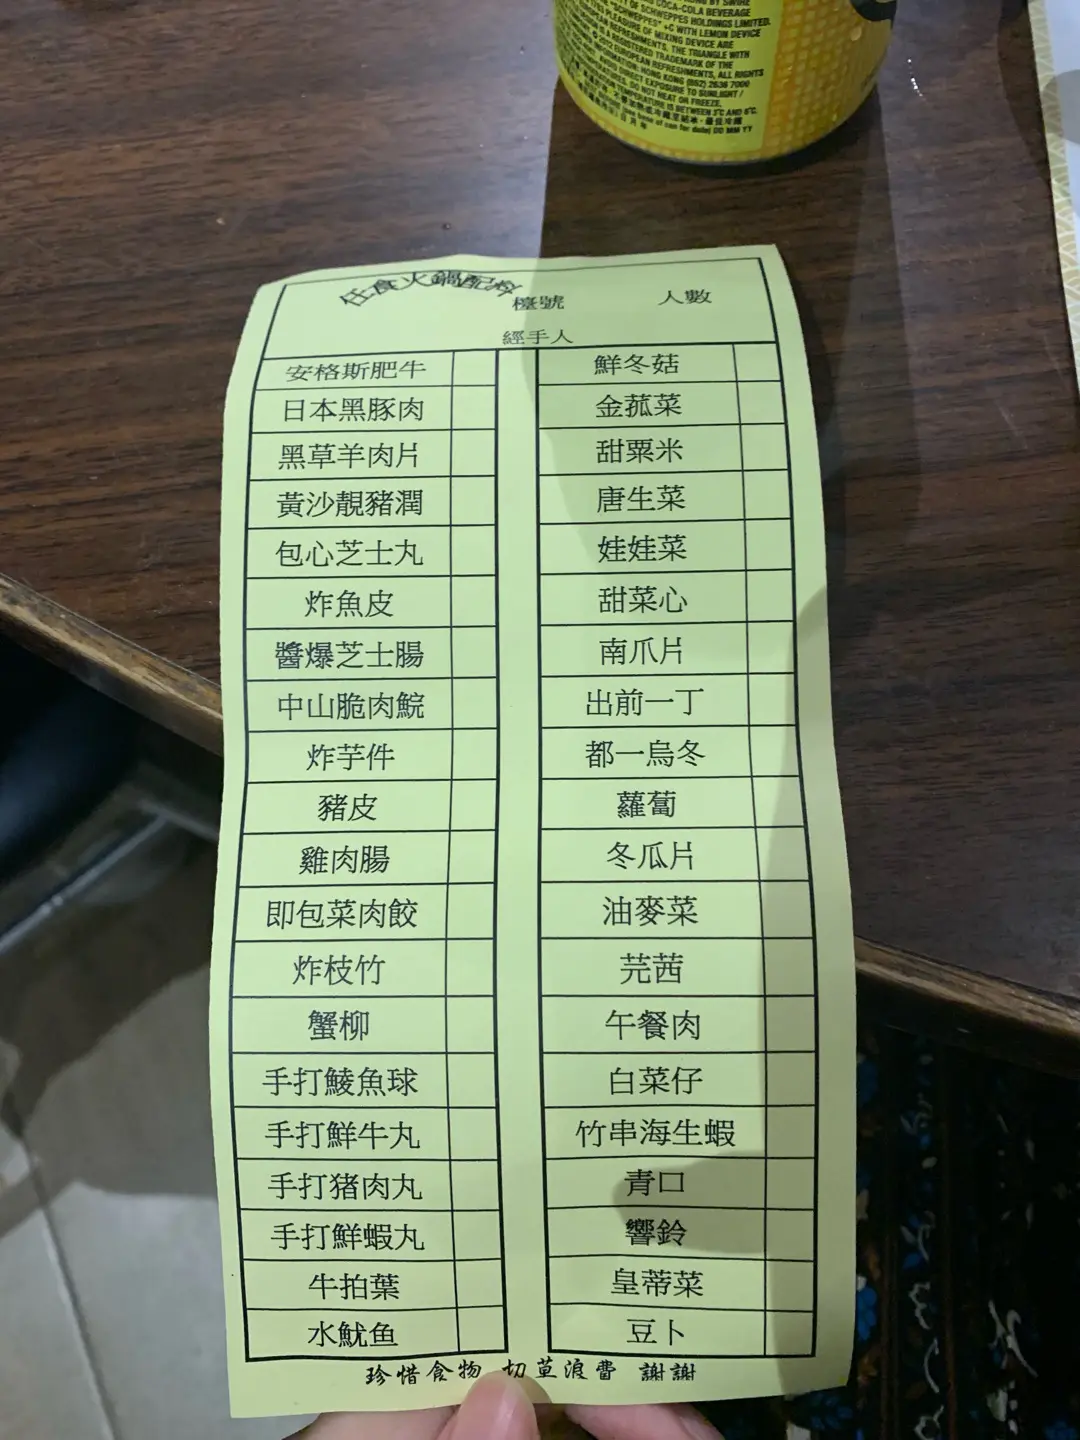 OF SCHWEPPES HOLDINGS LIMITED.
"SCHWEPPES" +C WITH LEMON DEVICE
PLEASURE OF MIXING DEVICE ARE
REFRESHMENTS, THE TRIANGLE WITH
A REGISTERED TRADEMARK OF THE
2012 EUROPEAN REFRESHMENTS, ALL RIGHTS
HONG KONG (852) 2636 7000
DIRECT EXPOSURE TO SUNLIGHT /
DO NOT HEAT OR FREEZE.
TEMPERATURE IS BETWEEN 3°C AND 6°C.
base of can for date) DD MM YY
任食火鍋配料 檯號 人數
經手人
安格斯肥牛 鮮冬菇
日本黑豚肉 金菰菜
黑草羊肉片 甜粟米
黃沙靚豬潤 唐生菜
包心芝士丸 娃娃菜
炸魚皮 甜菜心
醬爆芝士腸 南爪片
中山脆肉鯇 出前一丁
炸芋件 都一烏冬
豬皮 蘿蔔
雞肉腸 冬瓜片
即包菜肉餃 油麥菜
炸枝竹 芫茜
蟹柳 午餐肉
手打鯪魚球 白菜仔
手打鮮牛丸 竹串海生蝦
手打猪肉丸 青口
手打鮮蝦丸 響鈴
牛拍葉 皇蒂菜
水魷鱼 豆卜
珍惜食物 切草浪費 謝謝